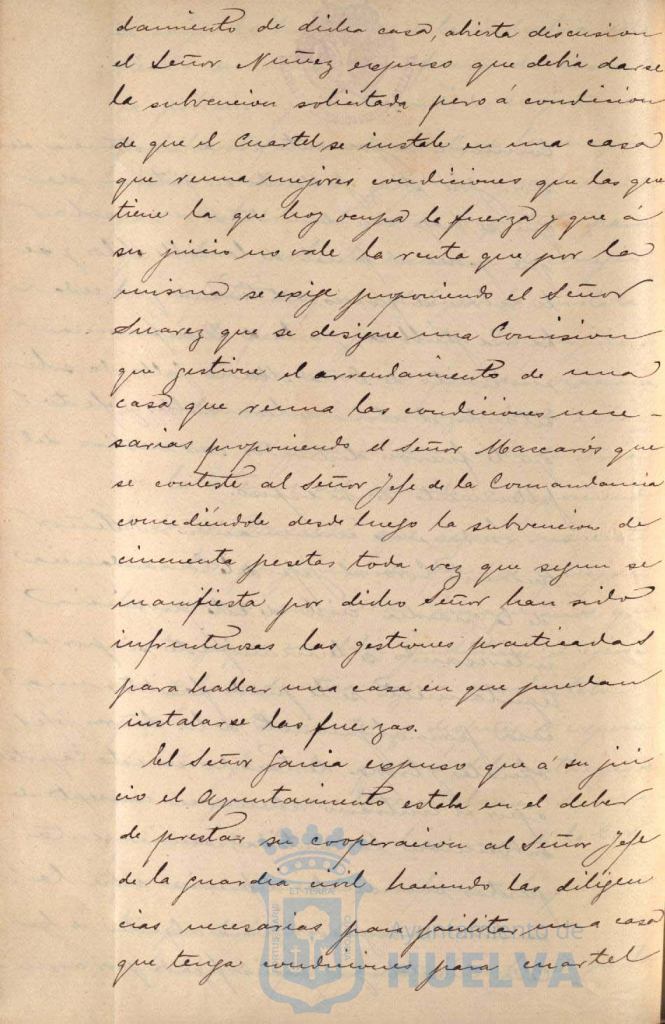 damiento de dicha casa, abierta discusion
el Señor Nuñez expuso que debia darse
la subvencion solicitada pero á condicion
de que el Cuartel se instale en una casa
que reuna mejores condiciones que las que
tiene la que hoy ocupa la fuerza y que á
su juicio no vale la renta que por la
misma se exige proponiendo el Señor
Suarez que se designe una Comision
que gestione el arrendamiento de una
casa que reuna las condiciones nece-
sarias proponiendo el Señor Mascarós que
se conteste al Señor Jefe de la Comandancia
concediéndole desde luego la subvencion de
cincuenta pesetas toda vez que segun se
manifiesta por dicho Señor han sido
infructuosas las gestiones practicadas
para hallar una casa en que puedan
instalarse las fuerzas.
El Señor Garcia expuso que á su jui
cio el Ayuntamiento estaba en el deber
de prestar su cooperacion al Señor Jefe
de la guardia civil haciendo las diligen
cias necesarias para facilitar una casa
que tenga condiciones para cuartel
Ayuntamiento de
HUELVA